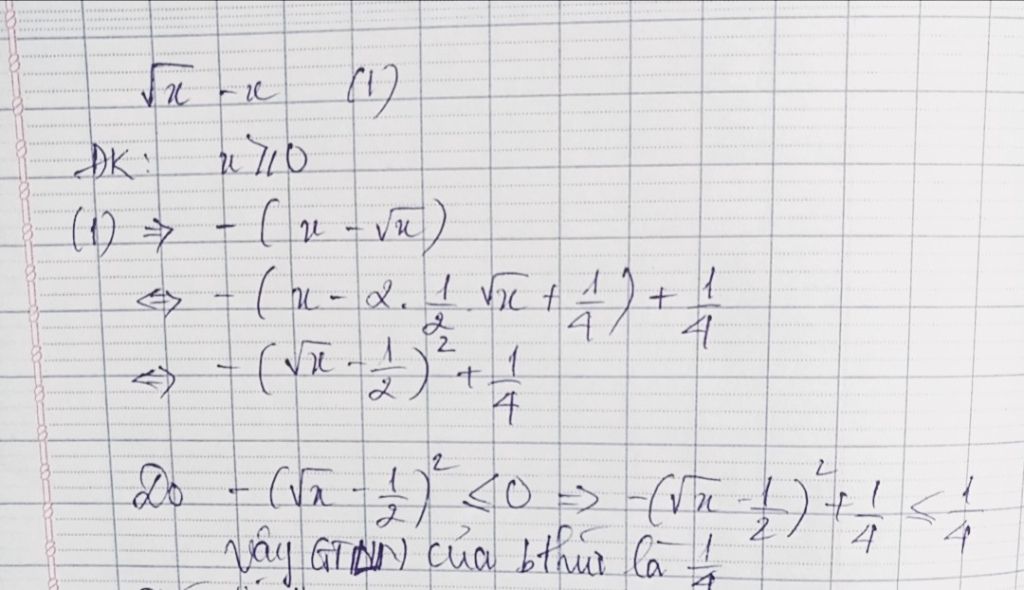 √x - x (1)
ĐK: x ≥ 0
(1) ⇒ - ( x - √x )
⇔ - ( x - 2. 1/2 √x + 1/4 ) + 1/4
⇔ - ( √x - 1/2 )² + 1/4
Do - (√x - 1/2)² ≤ 0 ⇒ -(√x - 1/2)² + 1/4 ≤ 1/4
Vậy của bthức là 1/4